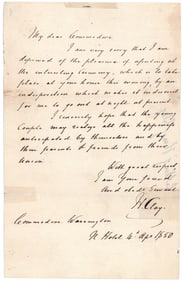 My dear Commodore
I am very sorry that I am
deprived of the pleasure of assisting at
the interesting Ceremony, which is to take
place at your home this evening, by an
indisposition which makes it imprudent
for me to go out at night at present.
I sincerely hope that the young
Couple may realize all the happiness
anticipated by themselves and by
their parents & friends from their
Union.
With great respect,
I am Your friend
And obedt Servant
H. Clay
Commodore Warrington
N. Hotel 4h Apl 1850